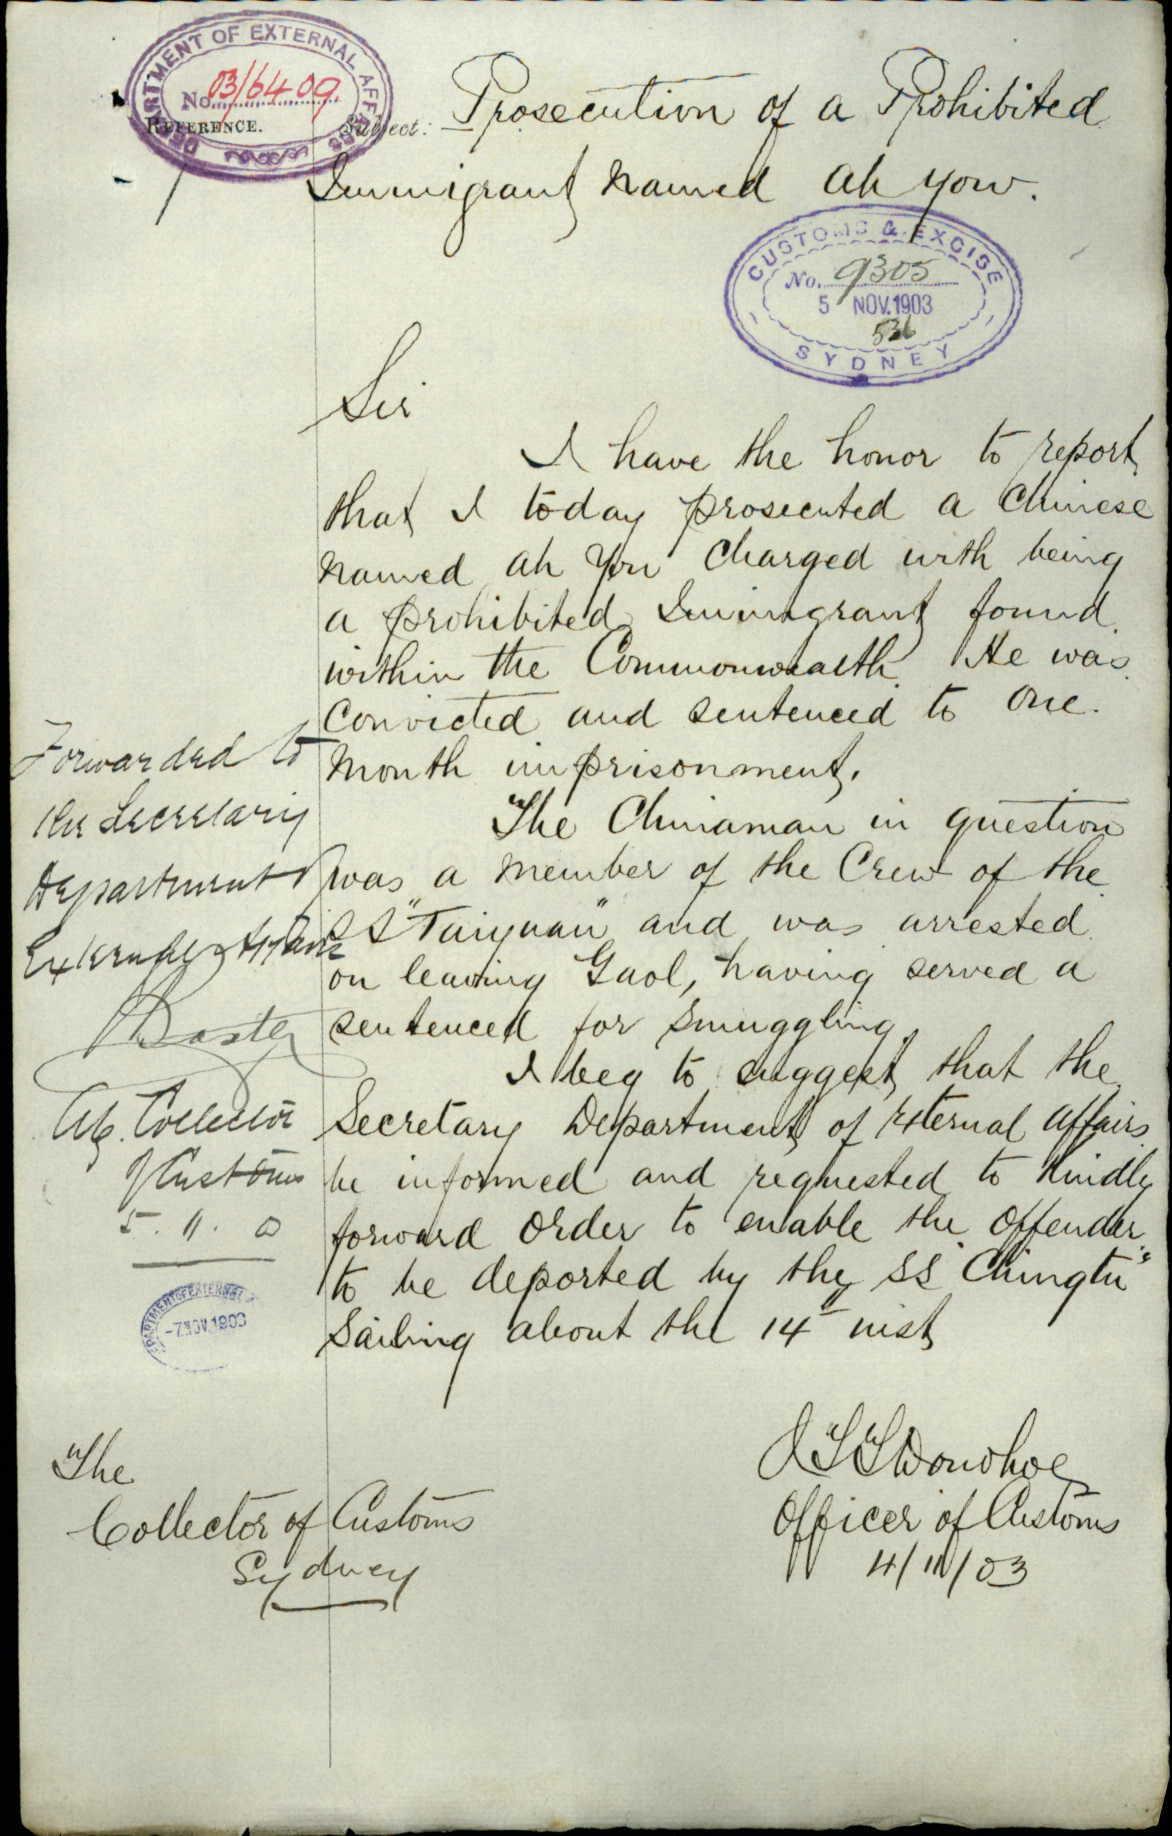 DEPARTMENT OF EXTERNAL AFFAIRS
No. 03/6409
REFERENCE.
Subject: Prosecution of a Prohibited
Immigrant named Ah Yow.
CUSTOMS & EXCISE
No. 9305
5 NOV. 1903
536
SYDNEY
Sir
I have the honor to report
that I today prosecuted a Chinese
named Ah You Charged with being
a prohibited Immigrant found
within the Commonwealth. He was
Convicted and sentenced to One
Month imprisonment.
The Chinaman in question
was a member of the Crew of the
SS "Taiyuan" and was arrested
on leaving Gaol, having served a
sentenced for Smuggling
I beg to suggest that the
Secretary Department of External Affairs
be informed and requested to kindly
forward Order to enable the Offender
to be deported by the SS "Chingtu"
Sailing about the 14th inst
Forwarded to
the Secretary
Department of
External Affairs
Baxter
Ag. Collector
of Customs
5. 11. 0
DEPARTMENT OF EXTERNAL
-7 NOV. 1903
The
Collector of Customs
Sydney
Donohoe
Officer of Customs
4/11/03